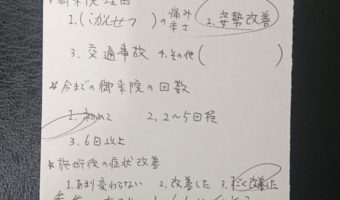 御来院理由
1.(こかんせつ)の痛み 辛さ 2.姿勢改善
3.交通事故 4.その他( )
*今までの御来院の回数
1.初めて 2.2~5回程
3.6回以上
*施術後の症状改善
1.あまり変わらない 2.改善した 3.とても改善した